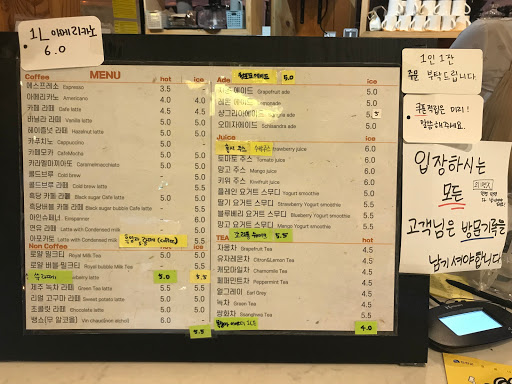 1L 아메리카노
6.0
Coffee MENU hot ice
에스프레소 Espresso 3.5 -
아메리카노 Americano 4.0 4.0
카페 라떼 Cafe latte 4.5 4.5
바닐라 라떼 Vanilla latte 5.0 5.0
헤이즐넛 라떼 Hazelnut latte 5.0 5.0
카푸치노 Cappuccino 5.0 5.0
카페모카 CafeMocha 5.0 5.0
카라멜마끼아또 Caramelmacchiato 5.0 5.0
콜드브루 Cold brew 5.0
콜드브루 라떼 Cold brew latte 5.5
흑당 카페 라떼 Black sugar Cafe latte 5.0
흑당버블 카페 라떼 Black sugar bubble Cafe latte 5.5
아인슈페너 Einspanner 5.5
연유 라떼 Latte with Condensed milk
아포카토 Latte with Condensed milk 5.5
Non Coffee hot ice
로얄 밀크티 Royal Milk Tea 5.0 5.0
로얄 버블 밀크티 Royal bubble Milk Tea 5.5
5.0 5.5
제주 녹차 라떼 Green Tea latte 5.5 5.5
리얼 고구마 라떼 Sweet potato latte 5.0 5.0
초콜릿 라떼 Chocolate latte 5.0 5.0
뱅쇼(무 알코올) 6.0 -
5.5
Ade 5.0 ice
자몽 에이드 Grapefruit ade 5.0
레몬 에이드 Lemonade 5.0
샹그리아에이드 Sangria ade 5.5
오미자에이드 Schisandra ade 5.0
Juice ice
Strawberry juice 6.0
토마토 주스 Tomato juice 6.0
망고 주스 Mango juice 6.0
키위 주스 Kiwifruit juice 6.0
플레인 요거트 스무디 Yogurt smoothie 5.0
딸기 요거트 스무디 Strawberry Yogurt smoothie 5.5
블루베리 요거트 스무디 Blueberry Yogurt smoothie 5.5
망고 요거트 스무디 Mango Yogurt smoothie 5.5
5.5
TEA hot
자몽차 Grapefruit Tea 4.5
유자레몬차 Citron&Lemon Tea 4.5
캐모마일차 Chamomile Tea 4.5
페퍼민트차 Peppermint Tea 4.5
얼그레이 Earl Grey 4.5
녹차 Green Tea 4.5
쌍화차 Ssanghwa Tea 5.5
4.0
1인 1잔
주문 부탁드립니다
쿠폰적립은 미리!
말씀해주세요.
입장하시는
모든
고객님은 방문기록을
남기셔야합니다